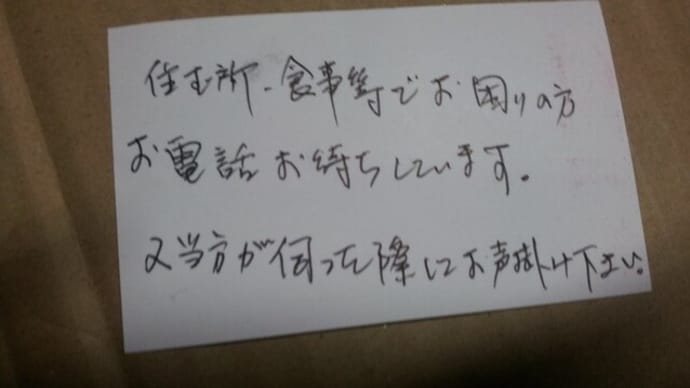 住む所、食事等でお困りの方
お電話お待ちしています。
又当方が伺った際にお声掛け下さい。